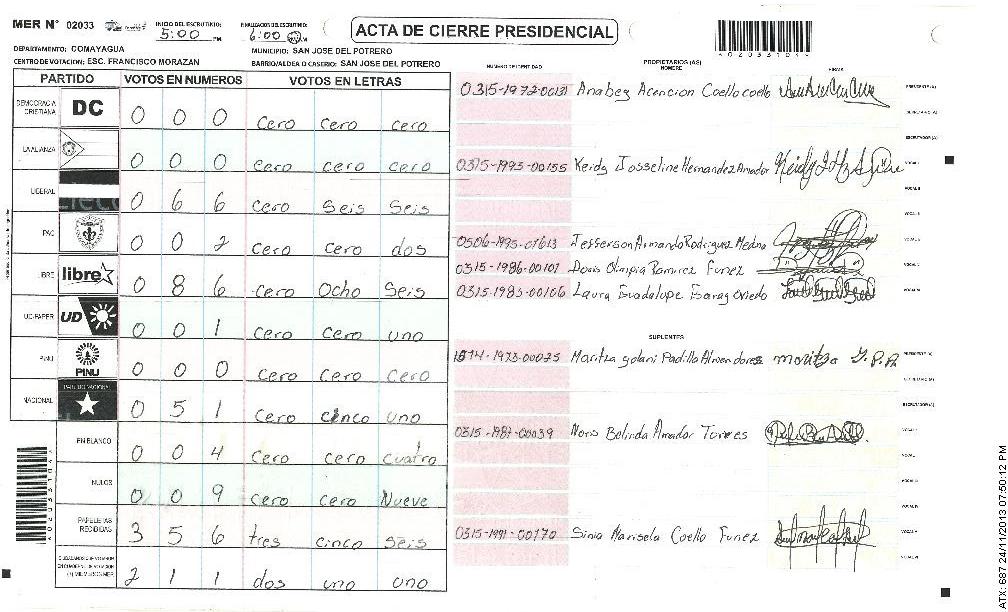 MER Nº 02033
INICIO DEL ESCRUTINIO: 5:00 PM
FINALIZACION DEL ESCRUTINIO: 6:00
ACTA DE CIERRE PRESIDENCIAL
DEPARTAMENTO: COMAYAGUA
MUNICIPIO: SAN JOSE DEL POTRERO
CENTRO DE VOTACION: ESC. FRANCISCO MORAZAN
BARRIO/ALDEA O CASERIO: SAN JOSE DEL POTRERO
PARTIDO VOTOS EN NUMEROS VOTOS EN LETRAS
DEMOCRACIA CRISTIANA DC 0 0 0 cero cero cero
LA ALIANZA 0 0 0 cero cero cero
LIBERAL 0 6 6 cero Seis Seis
PAC 0 0 2 cero cero dos
LIBRE libre 0 8 6 cero Ocho Seis
UD-FAPER UD 0 0 1 cero Cero uno
PINU PINU 0 0 0 cero Cero Cero
NACIONAL PARTIDO NACIONAL 0 5 1 cero cinco uno
EN BLANCO 0 0 4 cero cero cuatro
NULOS 0 0 9 cero cero Nueve
PAPELETAS RECIBIDAS 3 5 6 tres cinco Seis
2 1 1 dos uno uno
NUMERO DE IDENTIDAD
PROPIETARIOS (AS)
NOMBRE
FIRMAS
0315-1972-00131 Anabey Acencion Coello coello PRESIDENTE (A)
SECRETARIO (A)
ESCRUTADOR (A)
0315-1993-00155 Keidy Josseline Hernandez Amador VOCAL I
VOCAL II
0506-1995-01613 Jefferson Armando Rodriguez Medina
0315-1986-00101 Doris Olimpia Ramirez Funez
0315-1983-00106 Laura Guadalupe Oviedo
SUPLENTES
1514-1973-00075 Maritza yolani Padilla Almendares maritza Y.P.A PRESIDENTE (A)
SECRETARIO (A)
ESCRUTADOR (A)
0315-1987-00039 Noris Belinda Amador Torres
0315-1991-00170 Sinia Marisela Coello Funez
ATX: 687 24/11/2013 07:50:12 PM